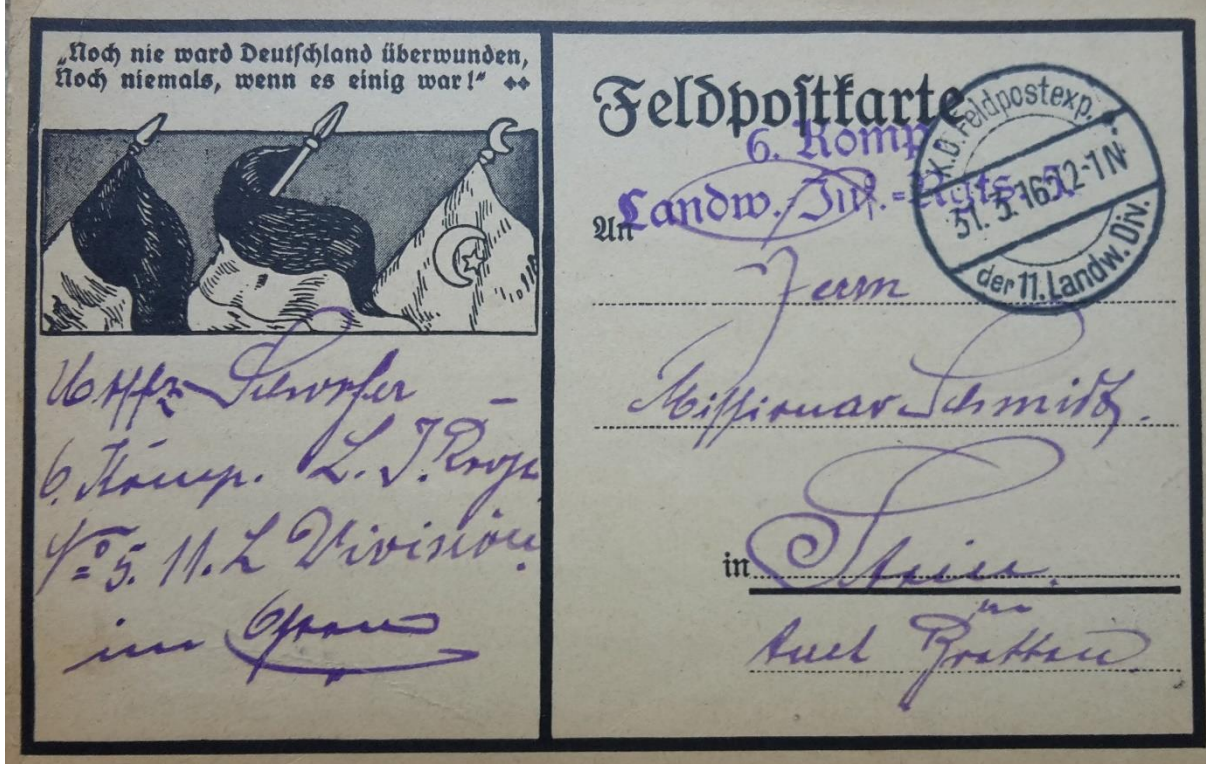 „Noch nie ward Deutschland überwunden,
Noch niemals, wenn es einig war!“
6. Komp. L. J. Regt.
No 5. 11. L Division.
im Osten
Feldpostkarte
6. Komp.
Landw.-Inf.-Rgts.
K.D. Feldpostexp.
31. 5. 16 12-1 N
der 11. Landw. Div.
An
Herrn
Missionar Schmidt.
in Stein.
in